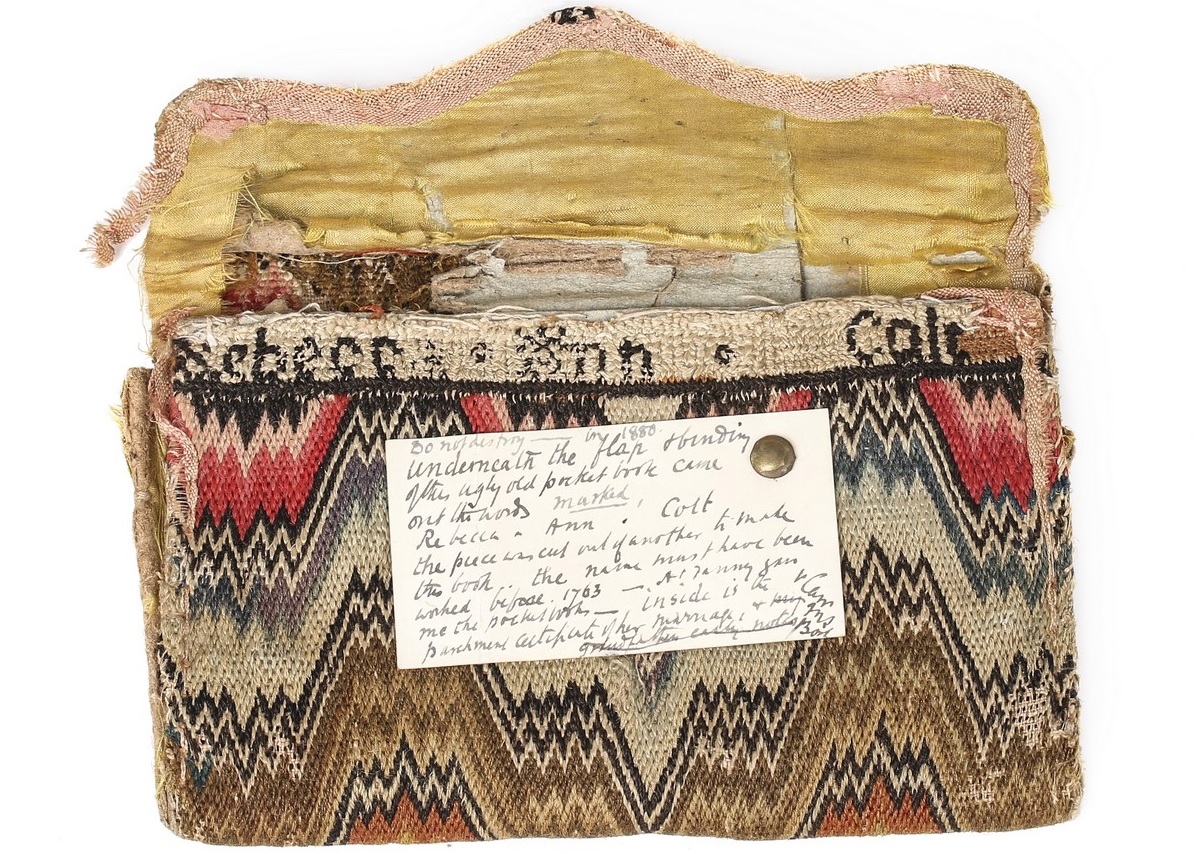 Rebecca · Ann · Colt
Do not destroy — 1880.
underneath the flap & binding
of this ugly old pocket book came
out the words marked,
Rebecca · Ann · Colt
the piece was cut out of another to make
this book.. the name must have been
worked before 1763 — At Fanny gave
me the pocket book — inside is the
parchment certificate of her marriage, &
grandfather notes
Box